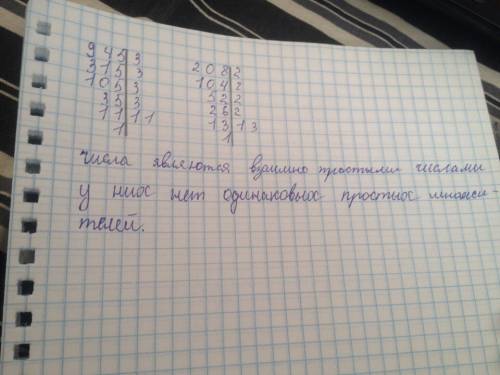 945 3 208 2
315 3 104 2
105 3 52 2
35 3 26 2
11 11 13 13
1 1
числа являются взаимно простыми числами
у них нет одинаковых простых множи
телей.